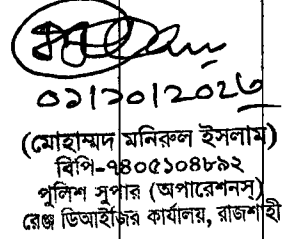 (মোহাম্মদ মনিরুল ইসলাম)
বিপি-৭৪০৫১০৪৮৯২
পুলিশ সুপার (অপারেশনস্)
রেঞ্জ ডিআইজির কার্যালয়, রাজশাহী